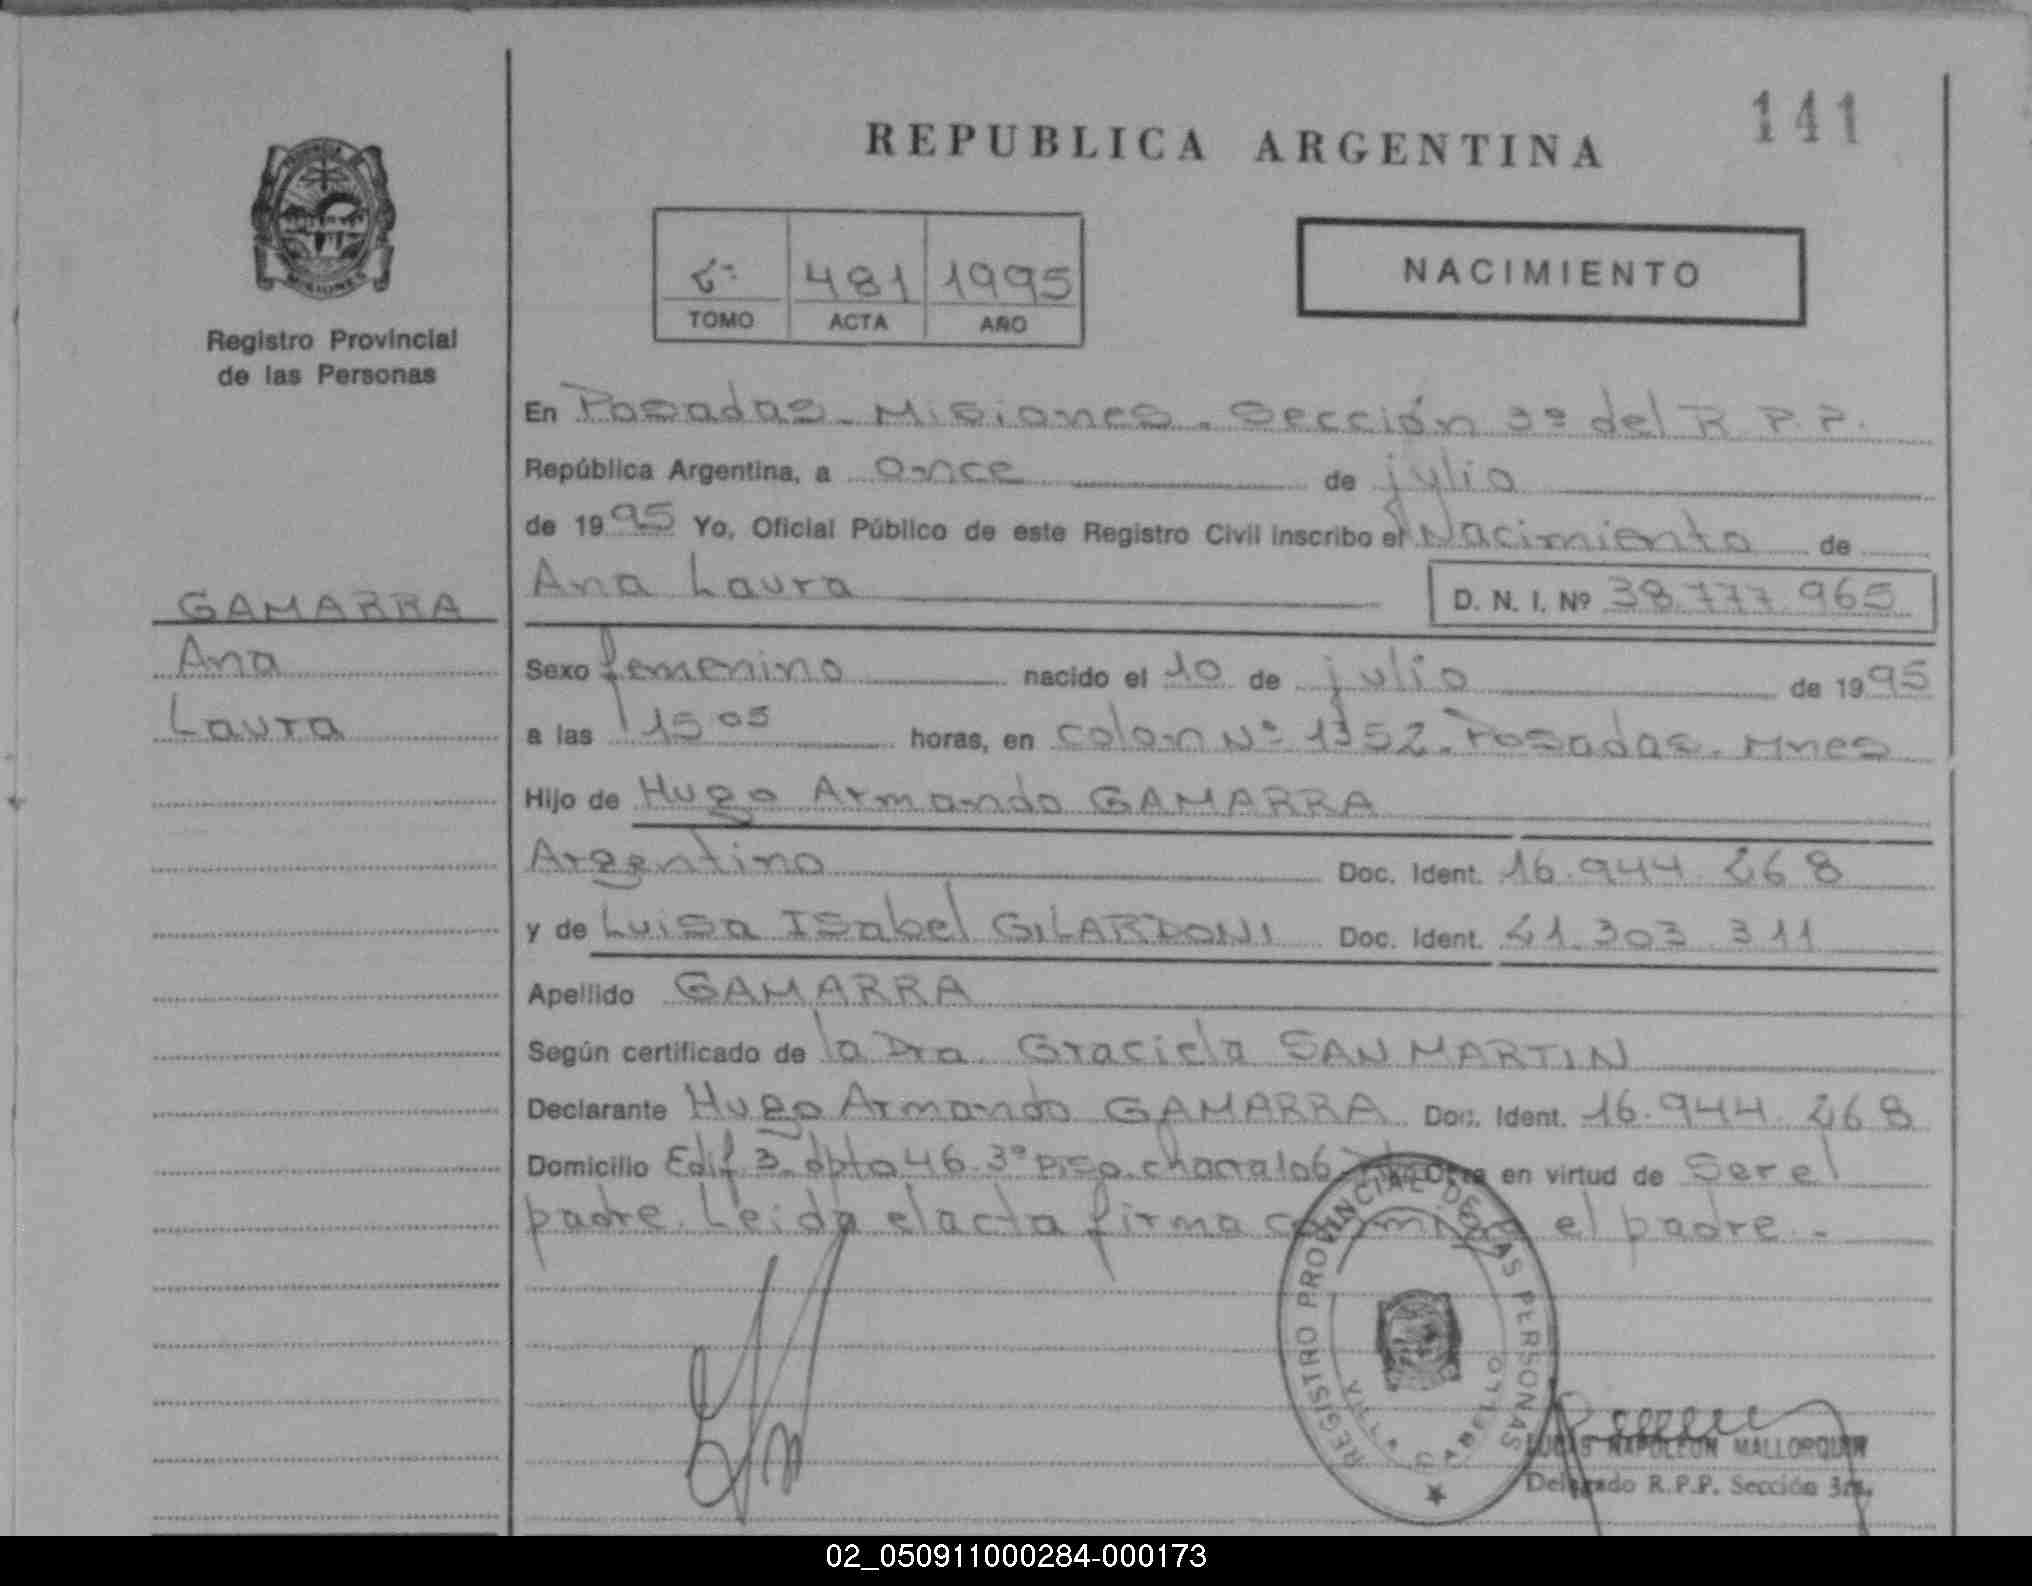 141
REPUBLICA ARGENTINA
PROVINCIA DE
MISIONES
2º 481 1995
TOMO ACTA AÑO
NACIMIENTO
Registro Provincial
de las Personas
En Posadas - Misiones - Sección 3º del R.P.P.
República Argentina, a once de julio
de 1995 Yo, Oficial Público de este Registro Civil inscribo el Nacimiento de
GAMARRA
Ana
Laura
Ana Laura D. N. I. Nº 38.777.965
Sexo femenino nacido el 10 de julio de 1995
a las 15 05 horas, en colon Nº 1352. Posadas. Mnes
Hijo de Hugo Armando GAMARRA
Argentino Doc. Ident. 16.944.268
y de Luisa Isabel GILARDONI Doc. Ident. 21.303.311
Apellido GAMARRA
Según certificado de la Dra. Graciela SAN MARTIN
Declarante Hugo Armando GAMARRA Doc. Ident. 16.944.268
Domicilio Edif 3. dpto 46. 3º Piso. chacra 106 Quien Obra en virtud de Ser el
padre. Leida el acta firma conmigo el padre.-
REGISTRO PROVINCIAL DE LAS PERSONAS
LUCAS NAPOLEON MALLORQUIN
Delegado R.P.P. Sección 3ra.
02_050911000284-000173